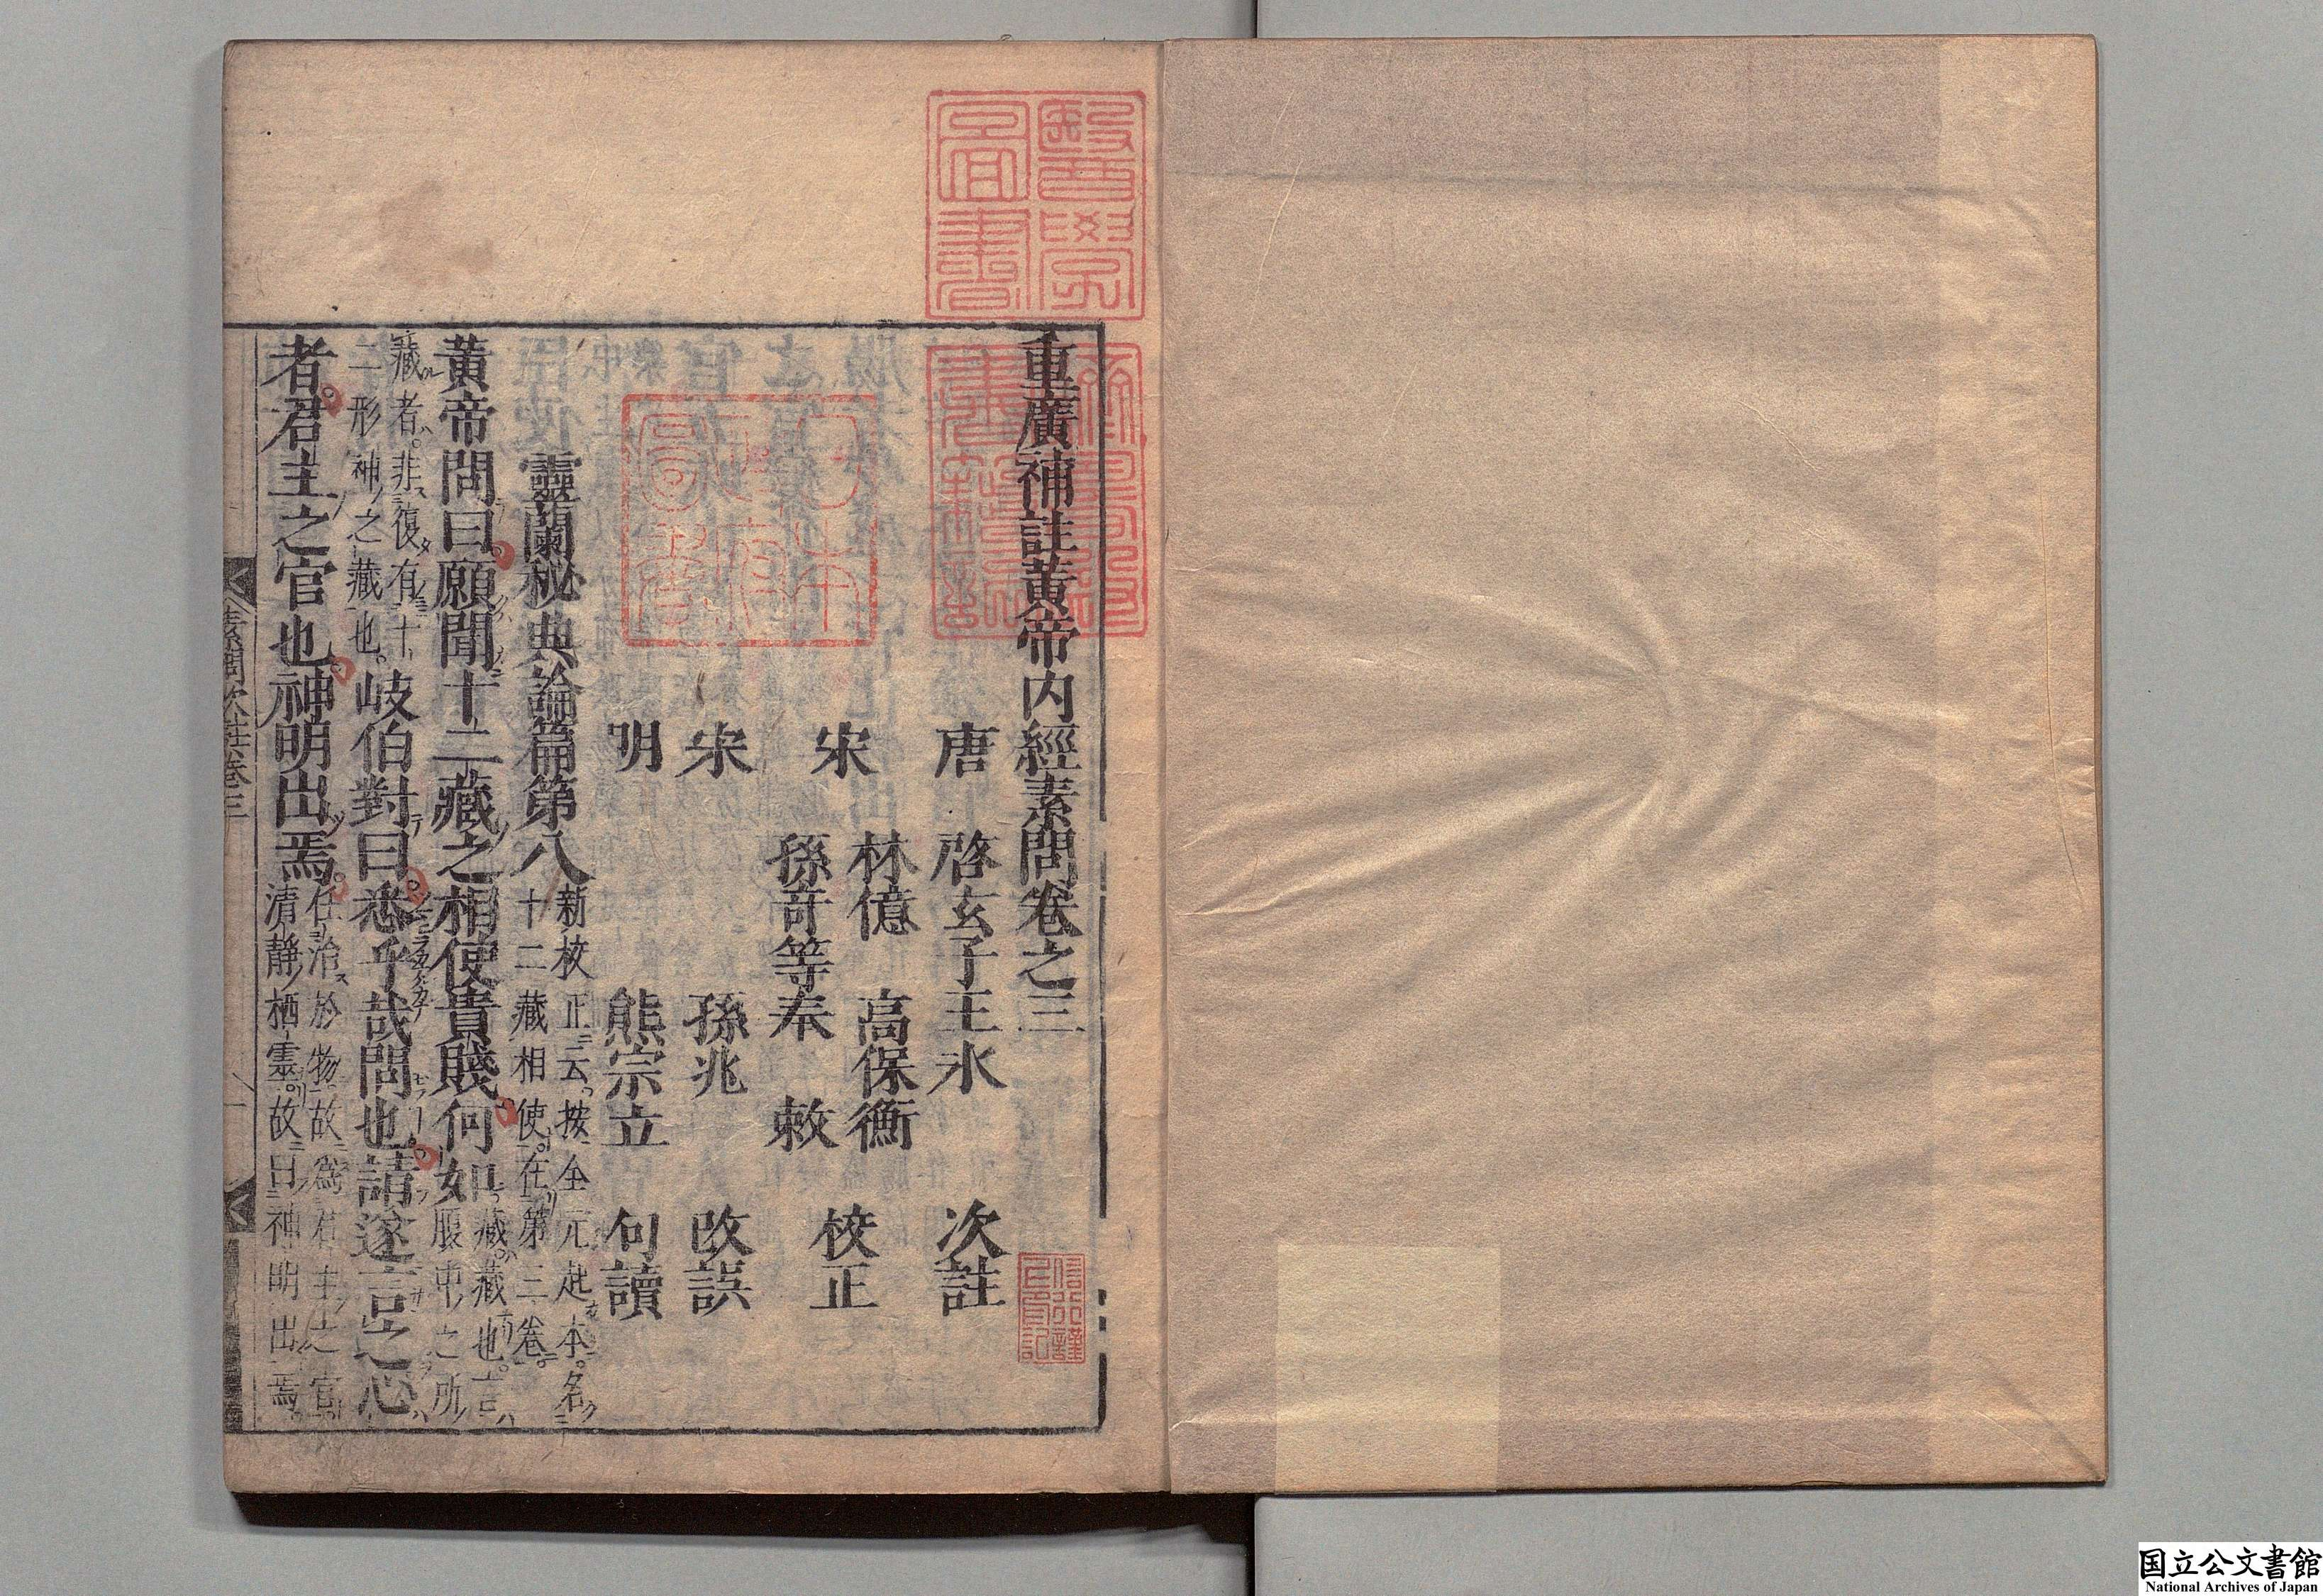 重廣補註黃帝内經素問卷之三
唐 啓玄子王氷 次註
宋 林億 高保衡
孫奇等奉 敕 校正
宋 孫兆 改誤
明 熊宗立 句讀
靈蘭秘典論篇第八
新校正云按全元起本名
十二藏相使在第三卷
黃帝問曰願聞十二藏之相使貴賤何如
藏藏也言
腹中之所
藏者非復有十
二形神之藏也
岐伯對曰悉乎哉問也請遂言之心
者君主之官也神明出焉
任治於物故爲君主之官
清靜栖靈故曰神明出焉
素問次註卷三
一
醫學圖書
国立公文書館
National Archives of Japan